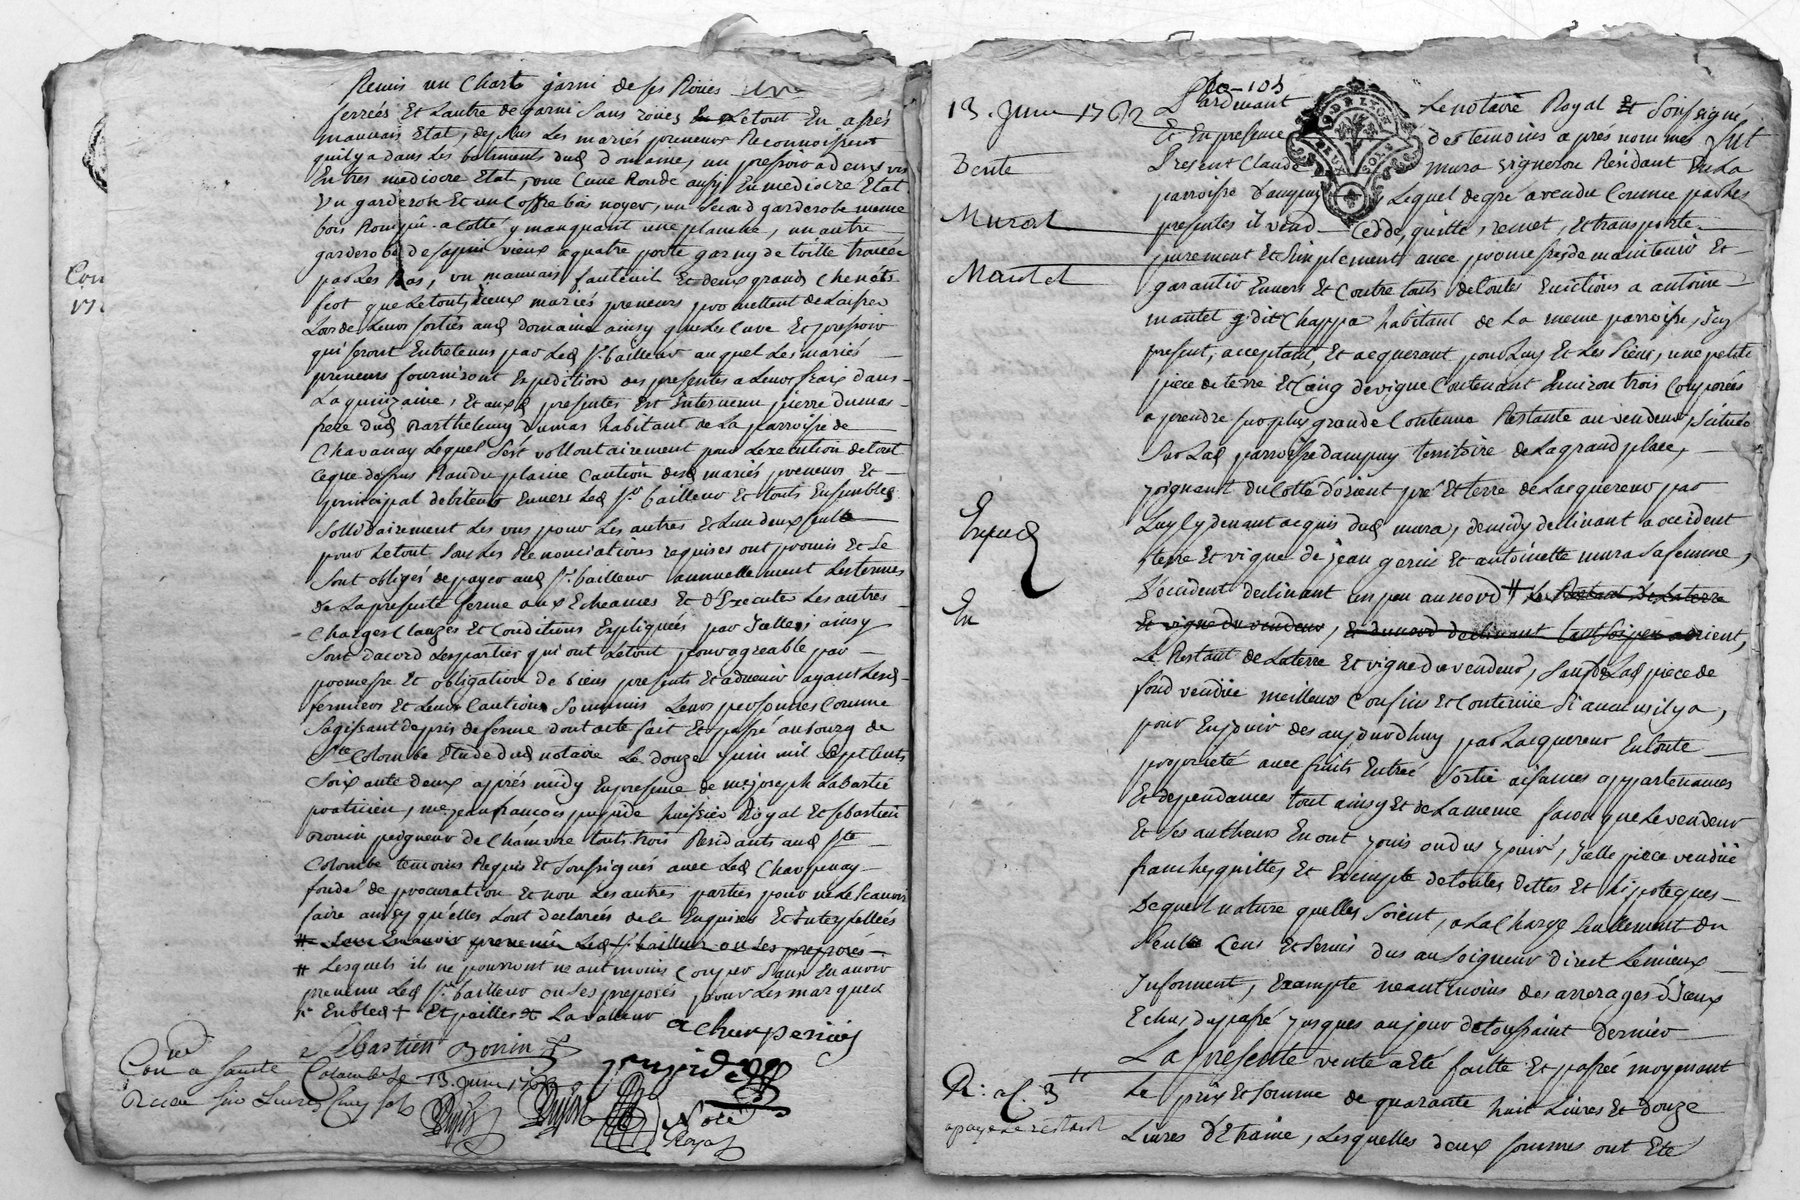 Remis un Charté garni de ses Roües
ferrées Et Lautre degarni sans roües Letout En assés
mauvais Etat, deplus Les mariés preneurs Reconnoissent
quil y a dans Les batiments dud domaine, un pressoir a deux vis
En tres mediocre Etat, une Cuve Ronde aussy En mediocre Etat
Un garderobe Et un Coffre bois noyer, un second garderobe meme
bois Rompû a cotté y manquant une planche, un autre
garderobe de sapin vieux a quatre porte garny de toille trouée
par Les Ras, un mauvais fauteuil Et deux grands Chenets
mariés preneurs promettent de Laisser
Lors de Leurs sorties aud domaine ainsy que Les Cuve Et pressoir
qui seront Entretenus par Led sr. bailleur auquel Les mariés
preneurs fourniront Expedition des presentes a Leurs fraix dans
La quinzaine, Et aux presentes Est Intervenu pierre dumas
frere dud Barthelemy dumas habitant de La parroisse de
Chavanay Lequel s'est vollontairement pour Lexecution de tout
ceque dessus Randu plaine Caution desd mariés preneurs Et
principal debiteur Envers Led sr. bailleur Et touts Ensembles
Sollidairement Les uns pour Les autres Et Lun deux seul
pour Letout, sous Les Renonciations requises ont promis Et se
sont obligés de payer aud sr. bailleur annuellement Les termes
de La presente ferme aux Echeances Et d'Executer Les autres
charges Clauzes Et Conditions Expliquées par Icelles, ainsy
sont d'acord Les parties qui ont Letout pour agreable par
promesse Et obligation de biens presents Et advenir ayant Lesd
fermiers Et Leurs Cautions soummis Leurs personnes Comme
s'agissant de pris de ferme dont acte fait Et passé au bourg de
Ste Colombe Etude dud notaire Le douze Juin mil Sept Cents
Soixante deux aprés midy En presence de me joseph Labastie
praticien, me jean françois huissier Royal Et sebastien
Bonin peigneur de Chanvre touts trois Residants aud Ste
Colombe temoins Requis Et soussignés avec Led
fondé de procuration Et non Les autres parties pour ne Le scavoir
faire ainsy qu'elles L'ont declarées de ce Enquises Et Interpellées
# sans En avoir prevenû Led sr. bailleur ou ses preposés
# Lesquels ils ne pourront neantmoins Couper sans En avoir
prevenu Led sr. bailleur ou ses preposés, pour Les marquer
Et pailles La valleur
Sebastien Bonin
Con a Sainte Colombe Le 13. Juin 1762
Recu Six Livres
Nore
Royal
Con
13. Juin 1762
Vente
Murat
Mantel
Expied
En
R: al. 3tt
a payé Le restant
fo - 103
Pardevant Le notaire Royal Et soussigné
Et En presence des temoins apres nommés fut
Present Claude Mura vigneron Residant En La
parroisse d'ampuy Lequel de gré a vendu Comme par Les
presentes il vend Cedde, quitte, remet, Et transporte
purement Et simplement avec promesse de maintenir Et
garantir Envers Et Contre touts de toutes Evictions a antoine
mantel dit Chappa habitant de La meme parroisse, Icy
present, acceptant, Et acquerant pour Luy Et Les siens, une petite
piece de terre Et Coing de vigne Contenant Environ trois Couporées
a prendre sur plus grande Contenue Restante au vendeur, scituée
sur Lad parroisse dampuy territoire de La grand place,
joignant du Cotté d'orient pré Et terre de Lacquereur par
Luy cydevant acquis dud mura, de midy declinant a occident
terre Et vigne de jean gerin Et antoinette mura sa femme,
d'occident declinant un peu au nord # Le Restant de La terre
Et vigne du vendeur, Et du nord declinant tant soi peu a orient,
Le Restant de La terre Et vigne du vendeur, sauf de Lad piece de
fond vendüe meilleurs Confins Et Contenüe Si aucuns il y a,
pour En jouir des aujourdhuy par Lacquereur En toute
proprieté avec fruits Entrée sortie aisances appartenances
Et dependances tout ainsy Et de La meme facon que Le vendeur
Et ses autheurs En ont jouis ou dus jouir, Icelle piece vendüe
franche, quitte, Et Exempte de toutes dettes Et hipoteques
de quel nature quelles soient, a La Charge seullement du
Cens Et servis dus au seigneur direct Le mieux
Informent, Exampte neantmoins des arrerages d'Iceux
Echus du passé jusques au jour de toussaint dernier
La presente vente a Eté faitte Et passée moyenant
Le prix Et somme de quarante huit Livres Et douze
Livres d'Etraine, Lesquelles deux sommes ont Eté